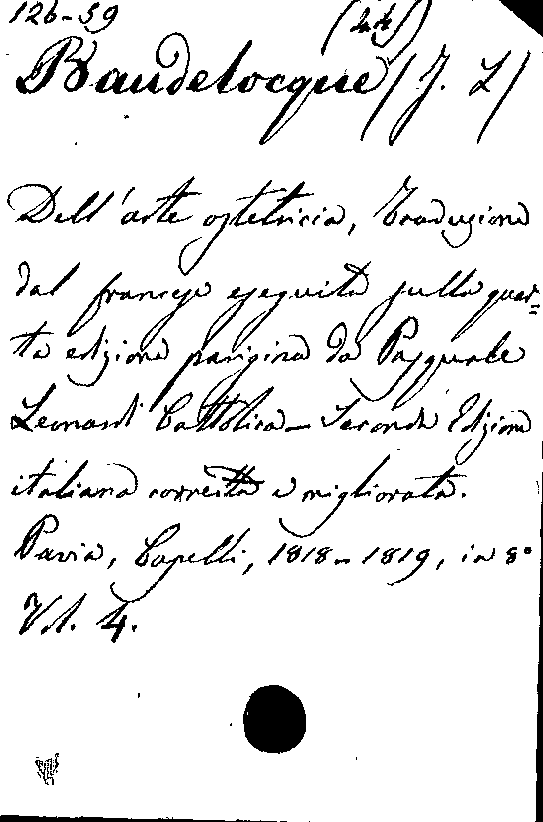 126-59
Baudelocque (J. L)
Dell'arte ostetricia, Traduzione
dal francese eseguita sulla quar=
ta edizione parigina da Pasquale
Leonardi Cattolica - Seconda Edizione
italiana corretta e migliorata.
Pavia, Capelli, 1818-1819, in 8°
Vol. 4.